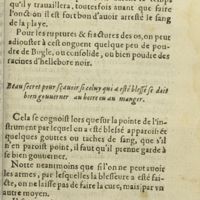 qu'il y trauaillera, toutesfois auant que faire
l'onction il est fort bon d'auoir arresté le sang
de la playe.
Pour les ruptures & fractures des os, on peut
adiouster à cest onguent quelque peu de pou-
dre de Bugle, ou consolide, ou bien poudre des
racines d'hellebore noir.
Beau secret pour sçauoir si celuy qui a esté blessé se doit
bien gouuerner au boire ou au manger.
Cela se cognoist lors que sur la pointe de l'in-
strument par lequel on a esté blessé apparoist
quelques gouttes ou taches de sang, que s'il
n'en paroist point, il faut qu'il prenne garde à
se bien gouuerner.
Notte neantmoins que si l'on ne peut auoir
les armes, par lesquelles la blesseure a esté fai-
cte, on ne laisse pas de faire la cure, mais par vn
autre moyen.